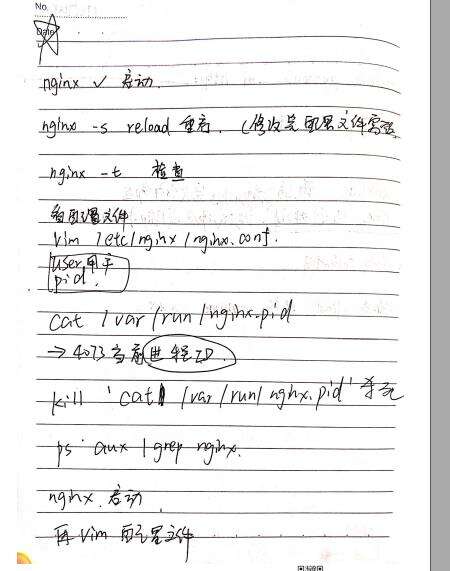 No.
Date
nginx ✓ 启动.
nginx -s reload 重启. (修改完配置文件需要
nginx -t 检查
看配置文件
vim /etc/nginx/nginx.conf.
user 用户
pid.
cat /var/run/nginx.pid
→ 4073 当前进程ID.
kill 'cat /var/run/nginx.pid' 杀死
ps aux | grep nginx.
nginx. 启动
再 vim 配置文件